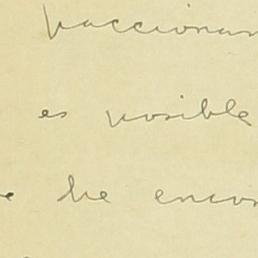 paccionan
es posible
e he encon